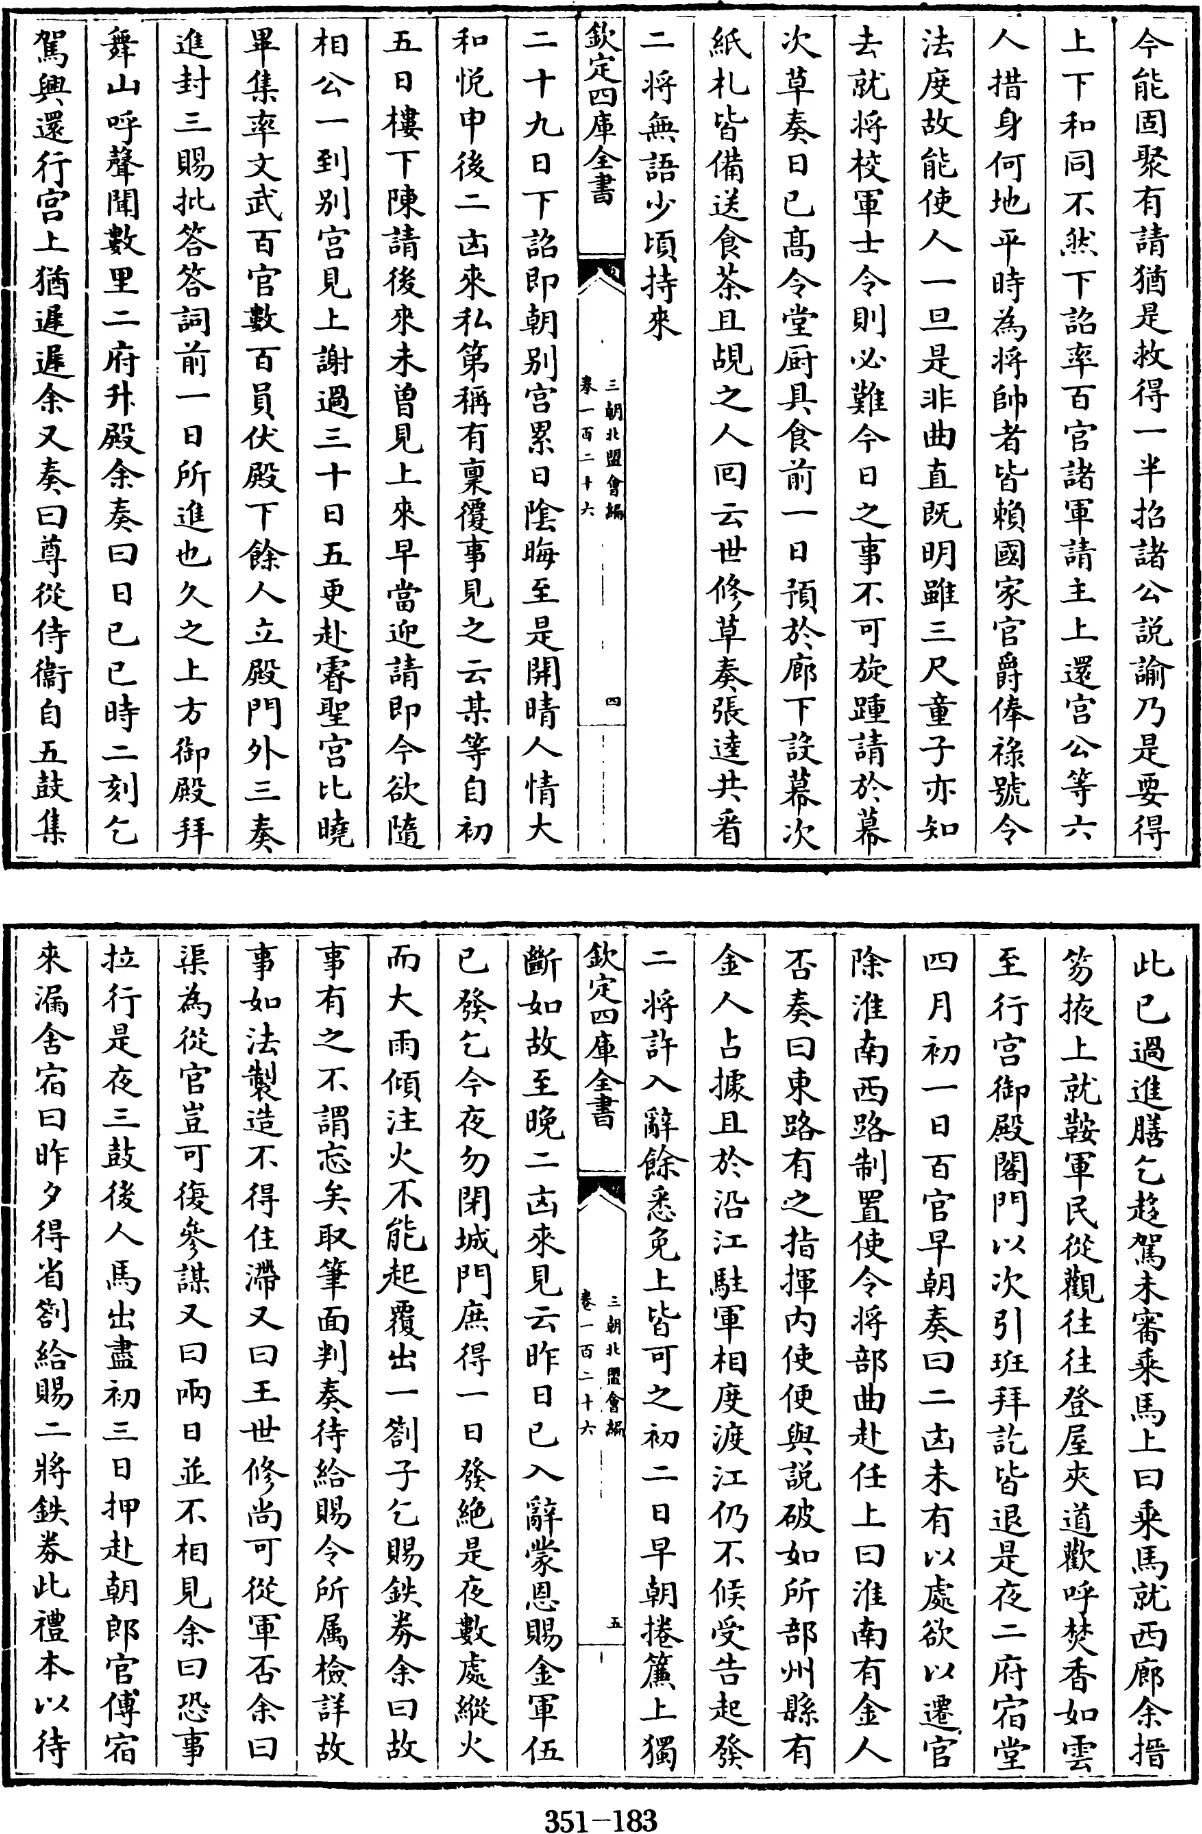 今能固聚有請猶是救得一半招諸公説諭乃是要得
上下和同不然下詔率百官諸軍請主上還宮公等六
人措身何地平時為將帥者皆賴國家官爵俸祿號令
法度故能使人一旦是非曲直既明雖三尺童子亦知
去就將校軍士令則必難今日之事不可旋踵請於幕
次草奏日已髙令堂厨具食前一日預於廊下設幕次
紙札皆備送食茶且覘之人回云世修草奏張逵共看
二將無語少頃持來
欽定四庫全書
三朝北盟會編
卷一百二十六
四
二十九日下詔即朝別宮累日陰晦至是開晴人情大
和悦申後二凶來私第稱有稟覆事見之云某等自初
五日樓下陳請後來未曽見上來早當迎請即今欲隨
相公一到別宮見上謝過三十日五更赴睿聖宮比曉
畢集率文武百官數百員伏殿下餘人立殿門外三奏
進封三賜批答答詞前一日所進也久之上方御殿拜
舞山呼聲聞數里二府升殿余奏曰日已巳時二刻乞
駕興還行宮上猶遲遲余又奏曰尊從侍衞自五鼓集
此已過進膳乞趍駕未審乘馬上曰乘馬就西廊余搢
笏掖上就鞍軍民從觀往往登屋夾道歡呼焚香如雲
至行宮御殿閤門以次引班拜訖皆退是夜二府宿堂
四月初一日百官早朝奏曰二凶未有以處欲以遷官
除淮南西路制置使令將部曲赴任上曰淮南有金人
否奏曰東路有之指揮内使便與説破如所部州縣有
金人占據且於沿江駐軍相度渡江仍不候受告起發
二將許入辭餘悉免上皆可之初二日早朝捲簾上獨
欽定四庫全書
三朝北盟會編
卷一百二十六
五
斷如故至晚二凶來見云昨日已入辭蒙恩賜金軍伍
已發乞今夜勿閉城門庶得一日發絶是夜數處縱火
而大雨傾注火不能起覆出一劄子乞賜鉄券余曰故
事有之不謂忘矣取筆面判奏待給賜令所属檢詳故
事如法製造不得住滯又曰王世修尚可從軍否余曰
渠為從官豈可復參謀又曰兩日並不相見余曰恐事
拉行是夜三鼓後人馬出盡初三日押赴朝郎官傅宿
來漏舍宿曰昨夕得省劄給賜二將鉄券此禮本以待
351-183